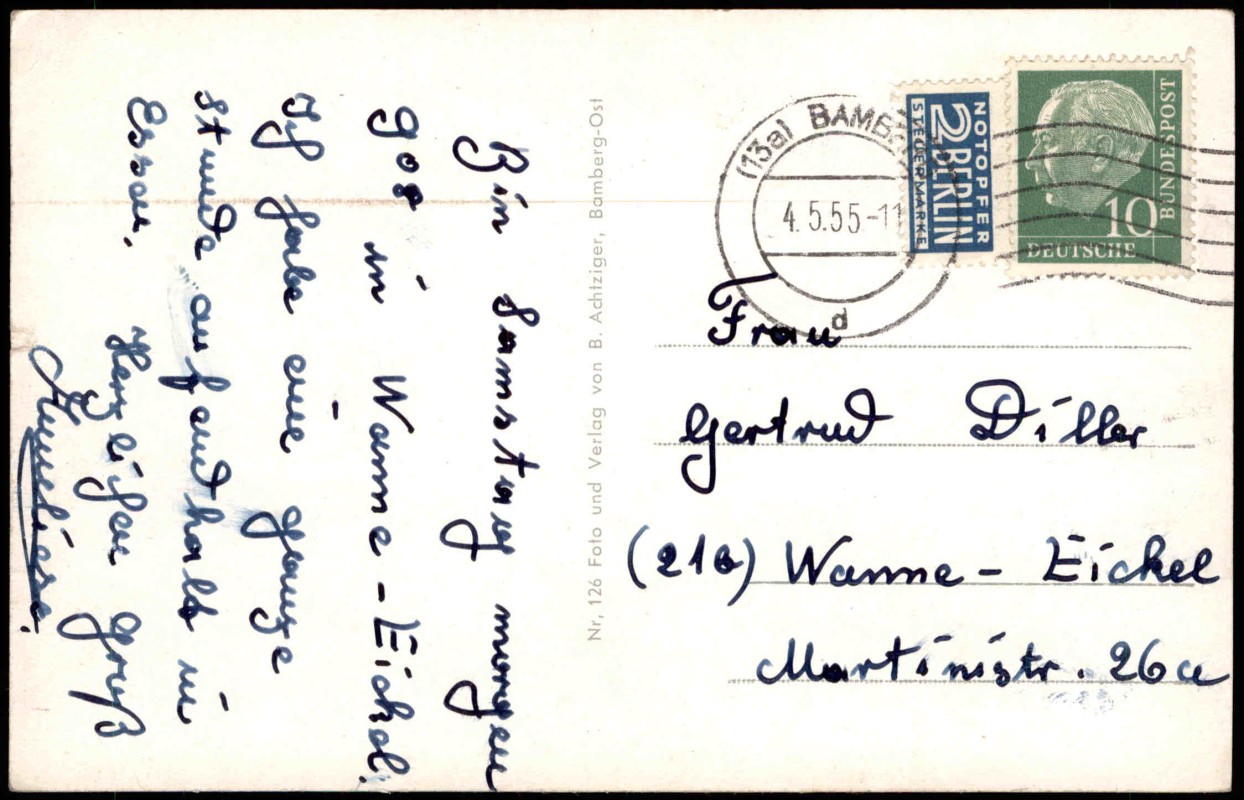 Bin Samstag morgen
9⁰⁸ in Wanne-Eickel.
Ich habe eine ganze
Stunde aufenthalt in
Essen. Herzlichen Gruß
Anneliese.
Nr. 126 Foto und Verlag von B. Achtziger, Bamberg-Ost
(13a) BAMBERG
4.5.55-11
d
NOTOPFER
2 BERLIN
STEUERMARKE
10
DEUTSCHE
BUNDESPOST
Frau
Gertrud Diller
(21a) Wanne-Eickel
Martinistr. 26a